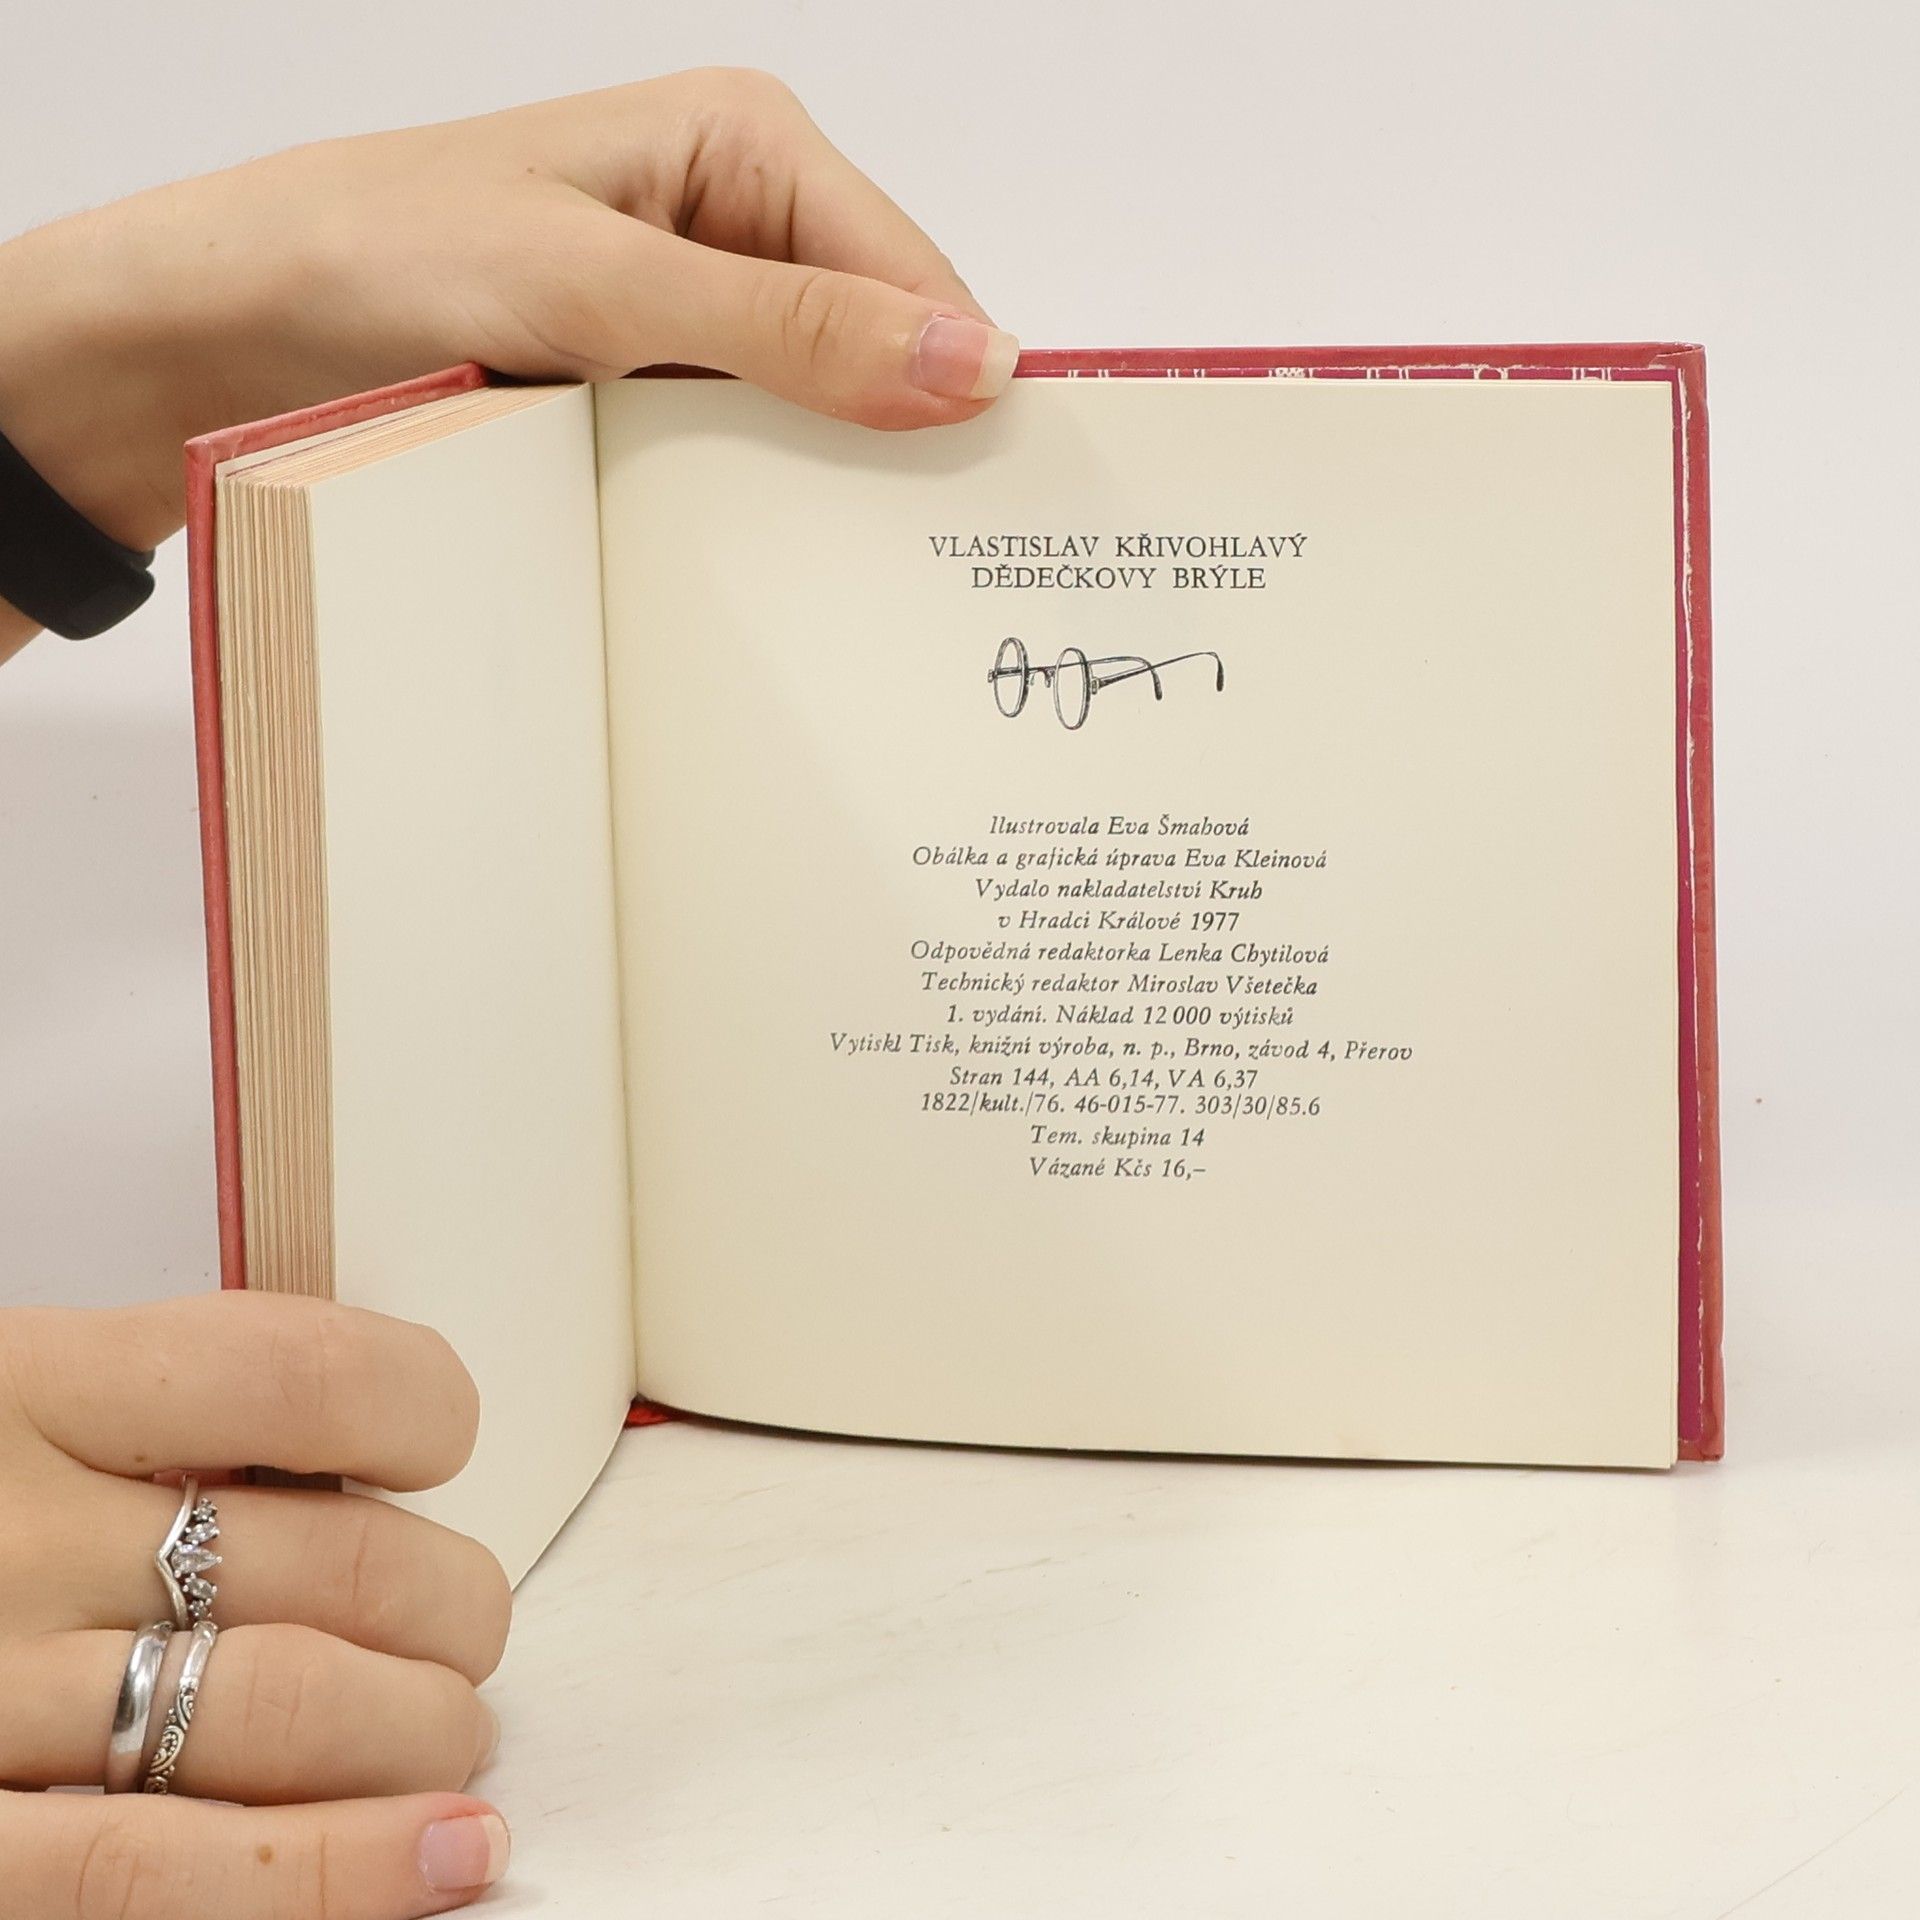 VLASTISLAV KŘIVOHLAVÝ
DĚDEČKOVY BRÝLE
Ilustrovala Eva Šmahová
Obálka a grafická úprava Eva Kleinová
Vydalo nakladatelství Kruh
v Hradci Králové 1977
Odpovědná redaktorka Lenka Chytilová
Technický redaktor Miroslav Všetečka
1. vydání. Náklad 12 000 výtisků
Vytiskl Tisk, knižní výroba, n. p., Brno, závod 4, Přerov
Stran 144, AA 6,14, VA 6,37
1822/kult./76. 46-015-77. 303/30/85.6
Tem. skupina 14
Vázané Kčs 16,–